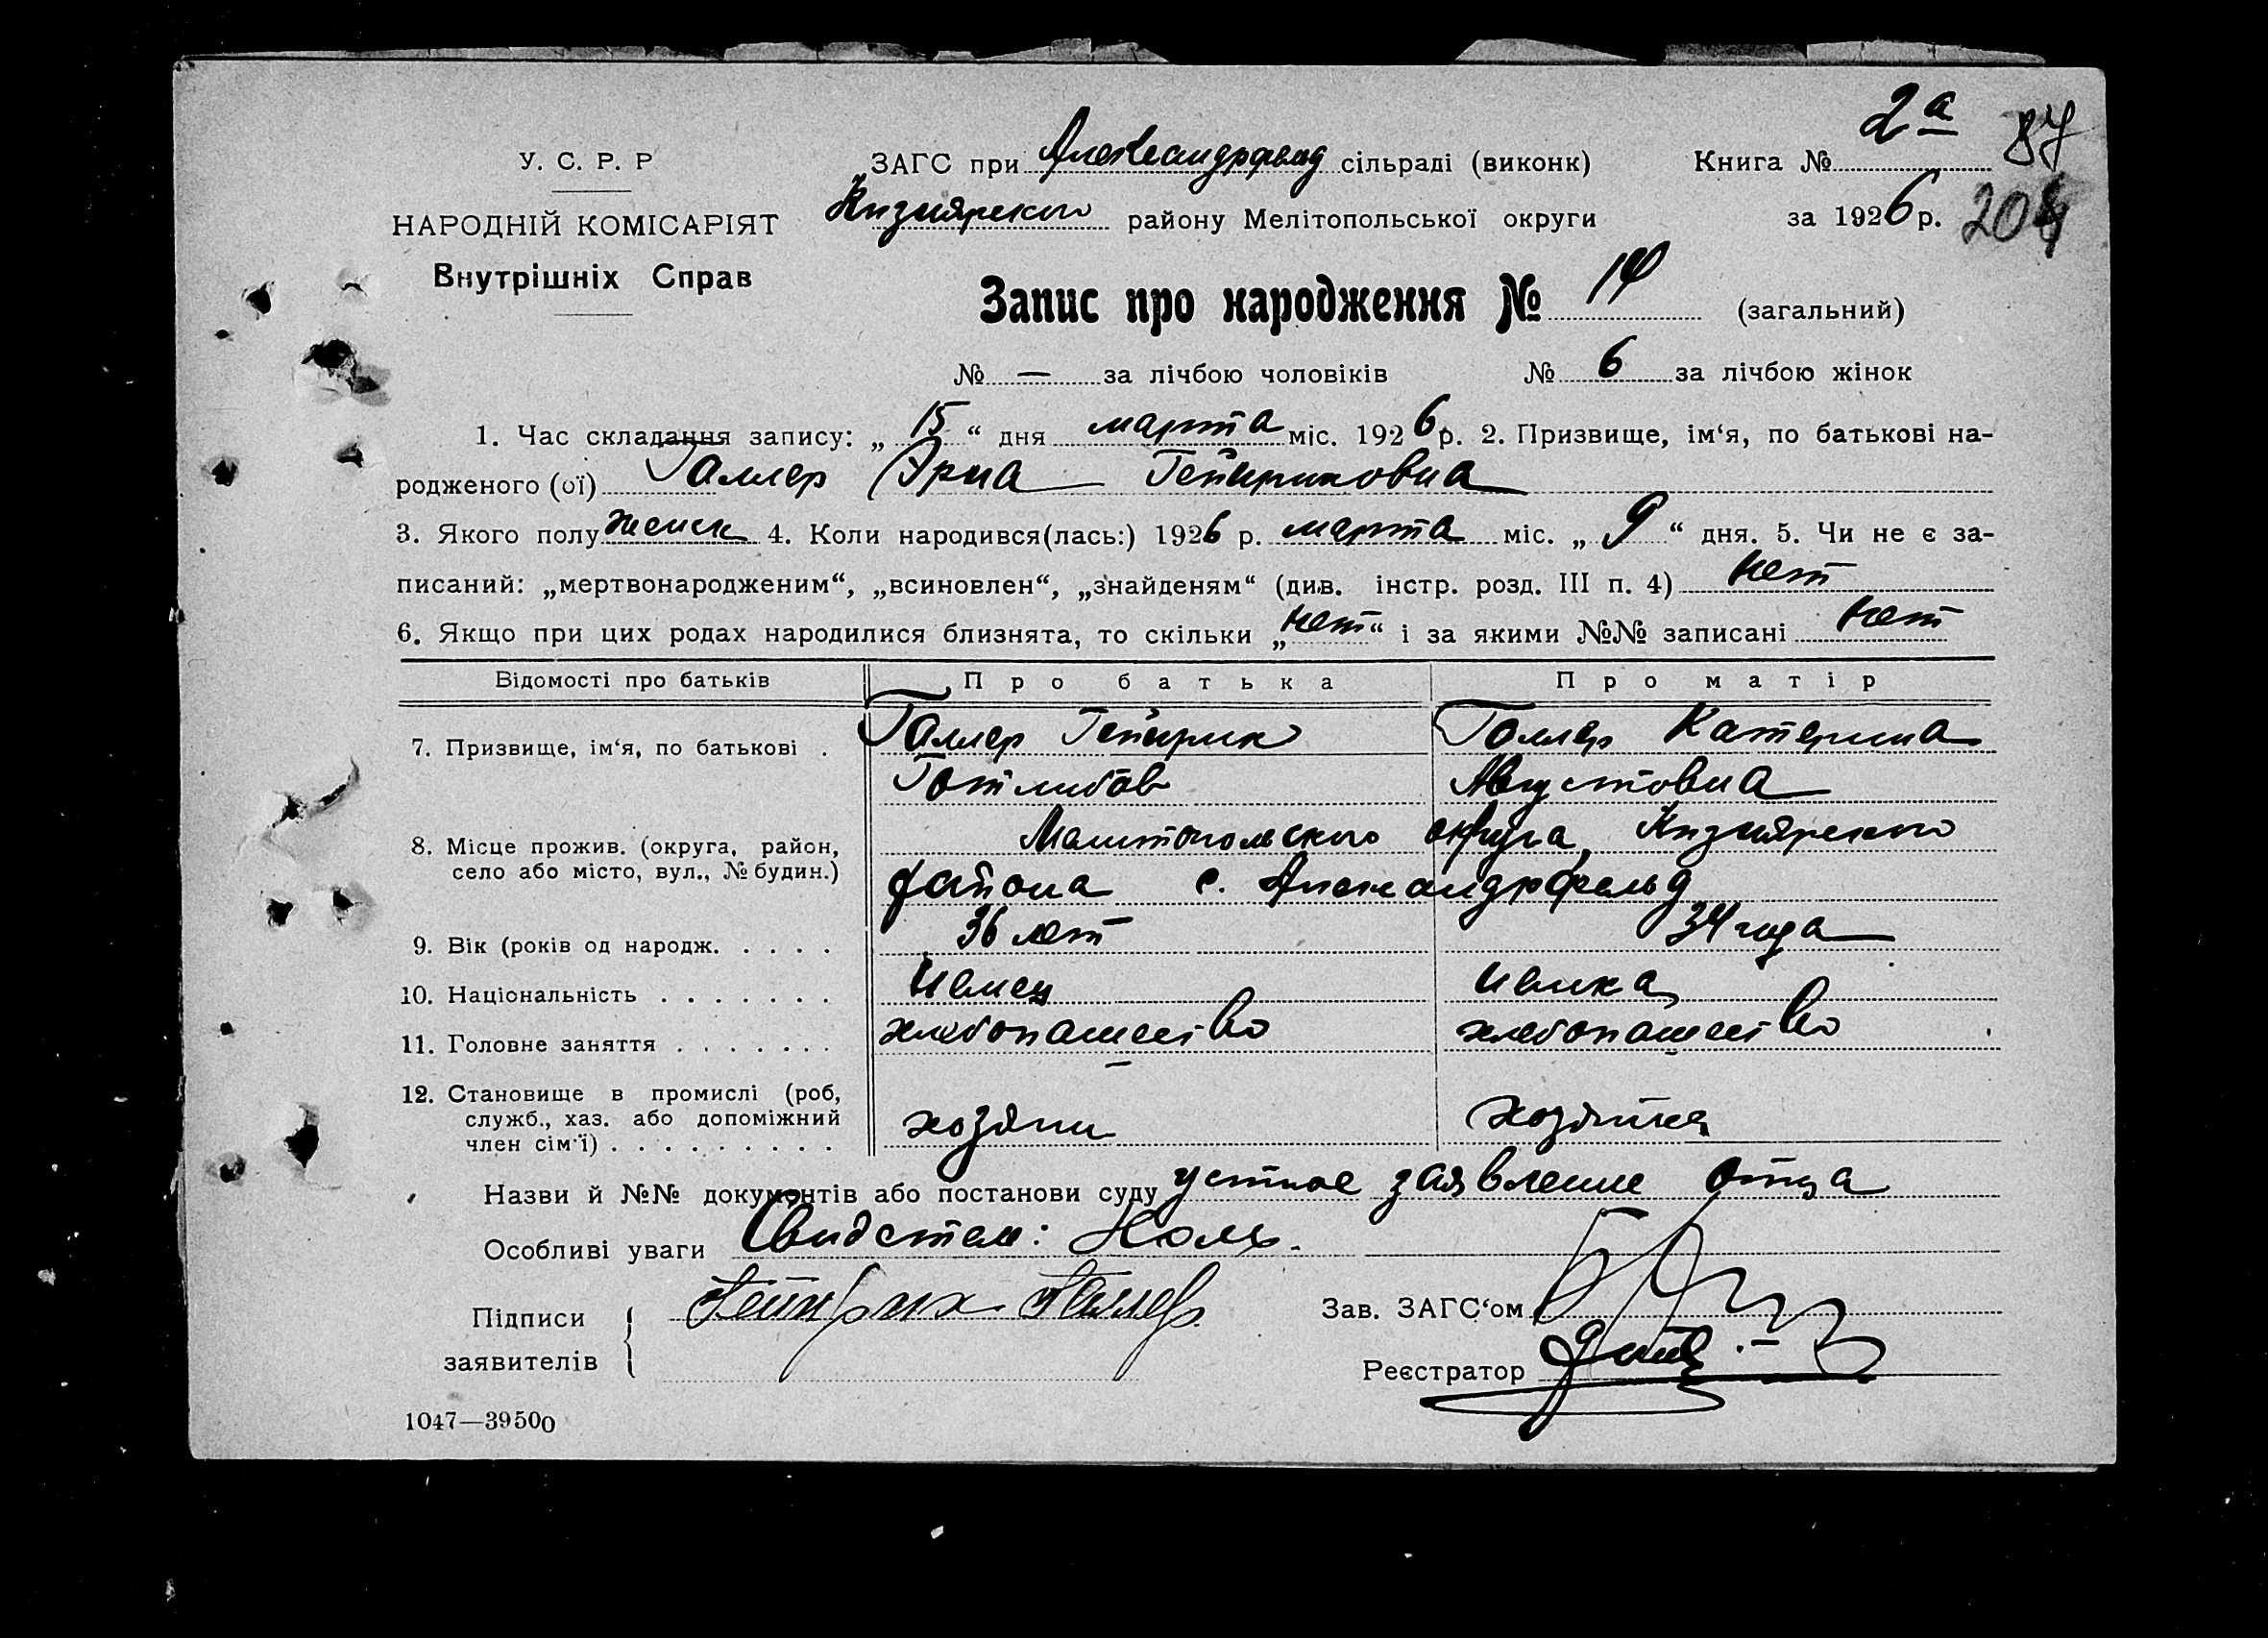 2а
87
У. С. Р. Р
ЗАГС при Александрфельд сільраді (виконк)
Книга №
НАРОДНІЙ КОМІСАРІЯТ
Кизиярского району Мелітопольської округи
за 1926 р.
204
Внутрішніх Справ
Запис про народження № 14 (загальний)
№ — за лічбою чоловіків № 6 за лічбою жінок
1. Час складання запису: „ 15 “ дня марта міс. 1926 р. 2. Призвище, ім‘я, по батькові на-
родженого (ої) Галлер Эрна Гейнриховна
3. Якого полу женск 4. Коли народився(лась:) 1926 р. марта міс. „ 9 “ дня. 5. Чи не є за-
писаний: „мертвонародженим“, „всиновлен“, „знайденям“ (див. інстр. розд. III п. 4) нет
6. Якщо при цих родах народилися близнята, то скільки „нет“ і за якими №№ записані нет
Відомості про батьків Про батька Про матір
7. Призвище, ім‘я, по батькові . Галлер Гейнрих Галлер Катерина
Готлибов Августовна
8. Місце прожив. (округа, район, Мелитопольского округа, Кизиярского
село або місто, вул., № будин.) района с. Александрфельд
9. Вік (років од народж. . . . . 36 лет 34 года
10. Національність . . . . . . . Немец Немка
11. Головне заняття . . . . . . . хлебопашество хлебопашество
12. Становище в промислі (роб,
служб., хаз. або допоміжний хозяин хозяйка
член сім‘ї) . . . . . . . . .
Назви й №№ документів або постанови суду устное заявление отца
Особливі уваги Свидетел:
Підписи Гейнрих Галлер
Зав. ЗАГС‘ом
заявителів
Реєстратор
1047—39500